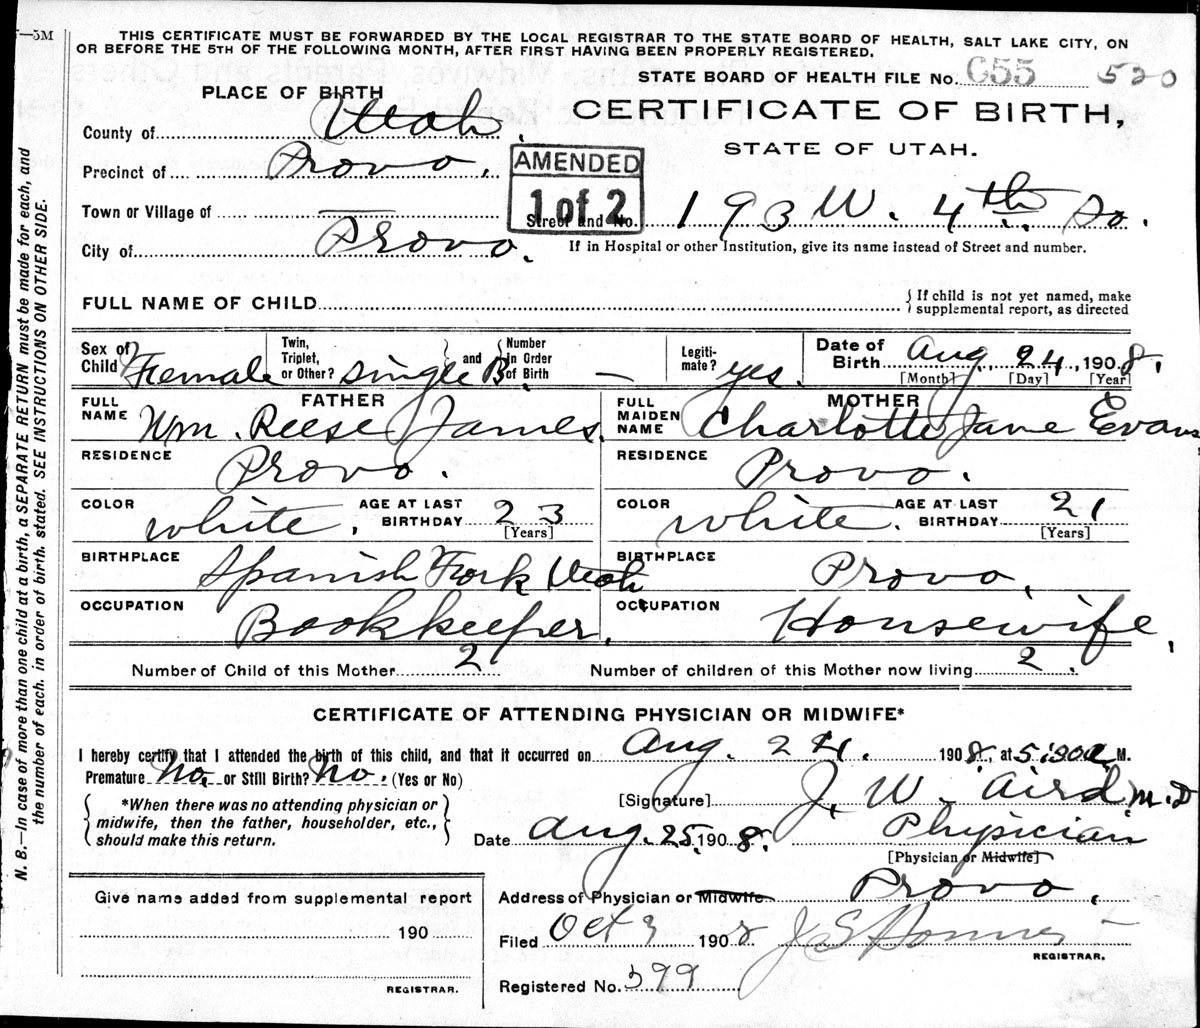 —5M
THIS CERTIFICATE MUST BE FORWARDED BY THE LOCAL REGISTRAR TO THE STATE BOARD OF HEALTH, SALT LAKE CITY, ON
OR BEFORE THE 5TH OF THE FOLLOWING MONTH, AFTER FIRST HAVING BEEN PROPERLY REGISTERED.
STATE BOARD OF HEALTH FILE No. C55 520
PLACE OF BIRTH
CERTIFICATE OF BIRTH,
STATE OF UTAH.
County of Utah.
Precinct of Provo.
AMENDED
1 of 2
Town or Village of —
Street and No. 193 W. 4th So.
City of Provo.
If in Hospital or other Institution, give its name instead of Street and number.
FULL NAME OF CHILD
If child is not yet named, make
supplemental report, as directed
Sex of Child Female
Twin, Triplet, or Other? single B. and Number in Order of Birth —
Legiti-mate? yes.
Date of Birth Aug. 24, 1908.
[Month] [Day] [Year]
FATHER
FULL NAME Wm. Reese James.
MOTHER
FULL MAIDEN NAME Charlotte Jane Evans
RESIDENCE Provo.
RESIDENCE Provo.
COLOR white. AGE AT LAST BIRTHDAY 23 [Years]
COLOR white. AGE AT LAST BIRTHDAY 21 [Years]
BIRTHPLACE Spanish Fork Utah
BIRTHPLACE Provo.
OCCUPATION Bookkeeper.
OCCUPATION Housewife.
Number of Child of this Mother 2
Number of children of this Mother now living 2.
CERTIFICATE OF ATTENDING PHYSICIAN OR MIDWIFE*
I hereby certify that I attended the birth of this child, and that it occurred on Aug. 24. 1908, at 5:30 a. M.
Premature No. or Still Birth? No. (Yes or No)
*When there was no attending physician or
midwife, then the father, householder, etc.,
should make this return.
[Signature] J. W. Aird M.D
Date Aug. 25. 1908. Physician
[Physician or Midwife]
Address of Physician or Midwife Provo.
Give name added from supplemental report
190
REGISTRAR.
Filed Oct 9 1908
REGISTRAR.
Registered No. 399
N. B.—In case of more than one child at a birth, a SEPARATE RETURN must be made for each, and
the number of each, in order of birth, stated. SEE INSTRUCTIONS ON OTHER SIDE.